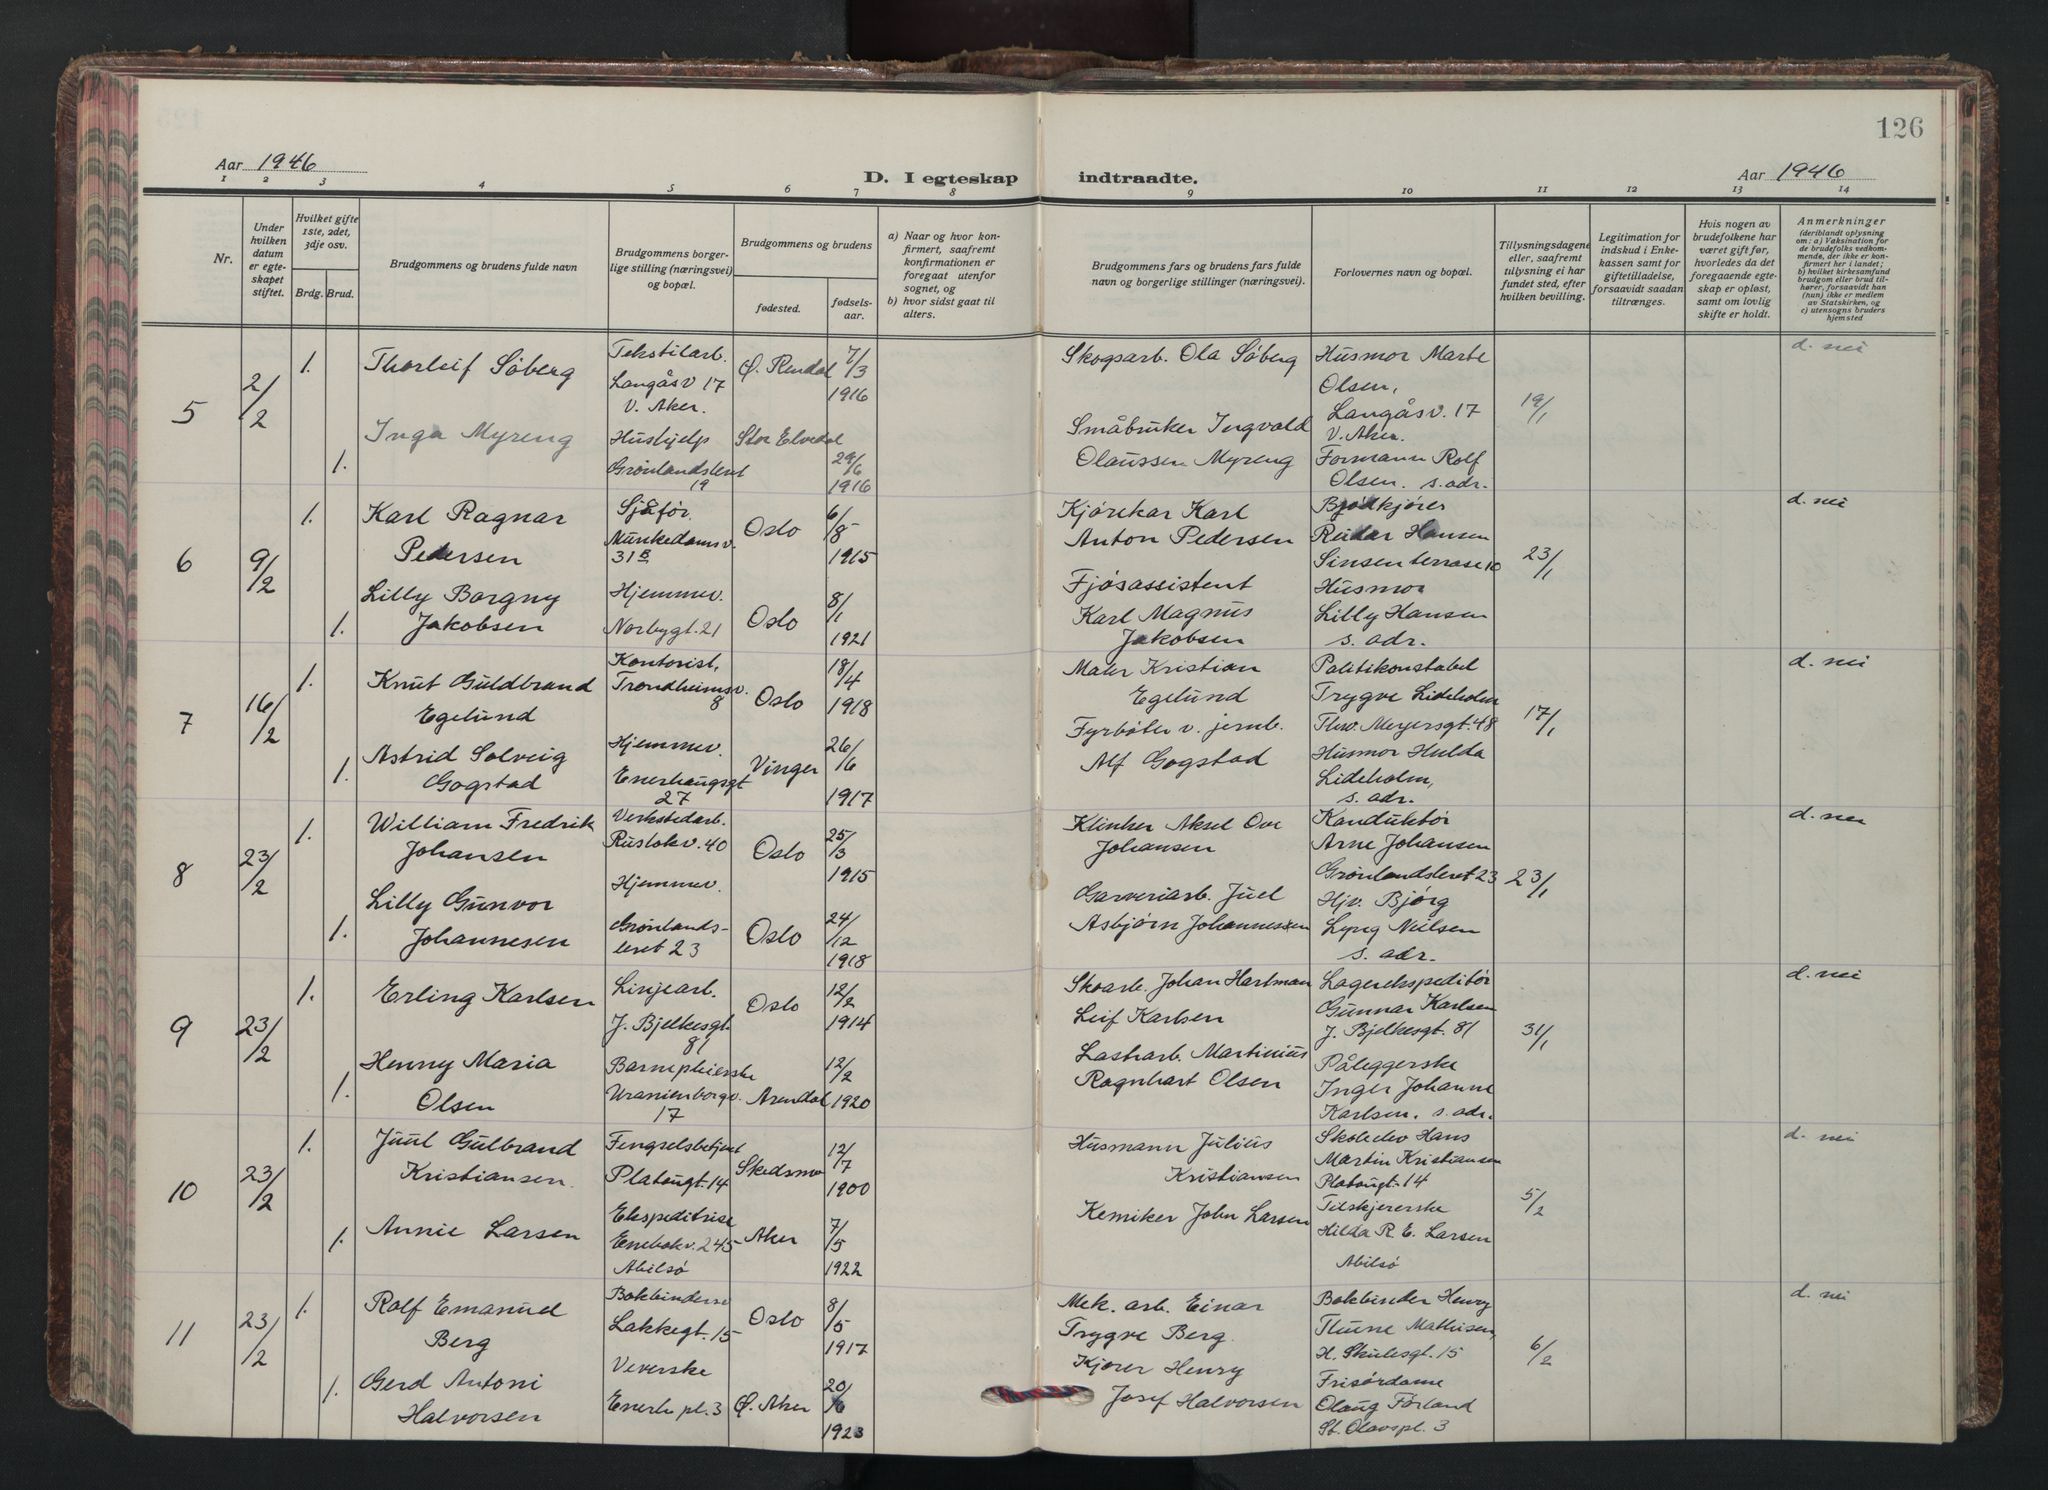 126
Aar 1946
D. I egteskap indtraadte.
Aar 1946
1 2 3 4 5 6 7 8 9 10 11 12 13 14
Nr.
Under hvilken datum er egteskapet stiftet.
Hvilket gifte 1ste, 2det, 3dje osv.
Brdg. Brud.
Brudgommens og brudens fulde navn
Brudgommens borgerlige stilling (næringsvei) og bopæl.
Brudgommens og brudens
fødested.
fødselsaar.
a) Naar og hvor konfirmert, saafremt konfirmationen er foregaat utenfor sognet, og
b) hvor sidst gaat til alters.
Brudgommens fars og brudens fars fulde navn og borgerlige stillinger (næringsvei).
Forlovernes navn og bopæl.
Tillysningsdagene eller, saafremt tillysning ei har fundet sted, efter hvilken bevilling.
Legitimation for indskud i Enkekassen samt for giftetilladelse, forsaavidt saadan tiltrænges.
Hvis nogen av brudefolkene har været gift før, hvorledes da det foregaaende egteskap er opløst, samt om lovlig skifte er holdt.
Anmerkninger
(deriblandt oplysning om: a) Vaksination for de brudefolks vedkommende, der ikke er konfirmert her i landet; b) hvilket kirkesamfund brudgom eller brud tilhører, forsaavidt han (hun) ikke er medlem av Statskirken, og c) utensogns bruders hjemsted
5
2/2
1.
Thorleif Söberg
Tekstilarb.
Langåsv 17
V. Aker.
Ø. Rendal
7/3
1916
Skogsarb. Ola Söberg
Husmor Marte
Olsen,
Langåsv. 17
V. Aker.
19/1
d. nei
1.
Inga Myreng
Hushjelp
Grønlandsleret
19
Stor Elvedal
29/6
1916
Småbruker Ingvald
Olaussen Myreng
Formann Rolf
Olsen. s. adr.
6
9/2
1.
Karl Ragnar
Pedersen
Sjåför.
Munkedamsv.
31B
Oslo
6/8
1915
Kjørekar Karl
Anton Pedersen
Reidar Hansen
Sinsenterrasse 10
23/1
d. nei
1.
Lilly Borgny
Jakobsen
Hjemmev.
Norbygt. 21
Oslo
8/1
1921
Fjøsassistent
Karl Magnus
Jakobsen
Husmor
Lilly Hansen
s. adr.
7
16/2
1.
Knut Guldbrand
Egelund
Kontorist,
Trondheimsv.
8
Oslo
18/4
1918
Maler Kristian
Egelund
Politikonstabel
Trygve Lideholm
Thv. Meyersgt. 48
17/1
d. nei
1.
Astrid Solveig
Gogstad
Hjemmev.
Enerhaugsgt
27
Vinger
26/6
1917
Fyrbøter v. jernb.
Alf Gogstad
Husmor Hulda
Lideholm,
s. adr.
8
23/2
1.
William Fredrik
Johansen
Verkstedarb.
Rusløkv. 40
Oslo
25/3
1915
Klinker Aksel Ove
Johansen
Konduktör
Arne Johansen
Grønlandsleret 23
23/1
d. nei
1.
Lilly Gunvor
Johannesen
Hjemmev.
Grønlands-
leret 23
Oslo
24/12
1918
Garveriarb. Juel
Asbjørn Johannessen
Hjv. Bjørg
Lyng Nielsen
s. adr.
9
23/2
1.
Erling Karlsen
Linjearb.
J. Bjelkesgt.
81
Oslo
12/2
1914
Skoarb. Johan Hartman
Leif Karlsen
Lagerekspeditör
Gunnar Karlsen
J. Bjelkesgt. 81
31/1
d. nei
1.
Henny Maria
Olsen
Barnepleierske
Uranienborgv.
17
Arendal
12/2
1920
Lastarb. Martinius
Ragnhart Olsen
Påleggerske
Inger Johanne
Karlsen. s. adr.
10
23/2
1.
Juul Gulbrand
Kristiansen
Fengselsbetjent
Platougt. 14
Skedsmo
12/7
1900
Husmann Julius
Kristiansen
Skoleelev Hans
Martin Kristiansen
Platougt. 14
5/2
d. nei
1.
Annie Larsen
Ekspeditrise
Enebakv. 245
Abilsö
Aker
7/5
1922
Kemiker John Larsen
Tilskjererske
Hilda R. E. Larsen
Abilsö
11
23/2
1.
Rolf Emanuel
Berg
Bokbinder
Lakkegt. 15
Oslo
8/5
1917
Mek. arb. Einar
Trygve Berg.
Bokbinder Henry
Thune Mathisen,
H. Skulesgt. 15
6/2
d. nei
1.
Gerd Antoni
Halvorsen
Veverske
Enerh. pl. 3
Ø. Aker
20/6
1923
Kjører Henry
Josef Halvorsen
Frisördame
Olaug Förland
St. Olavspl. 3